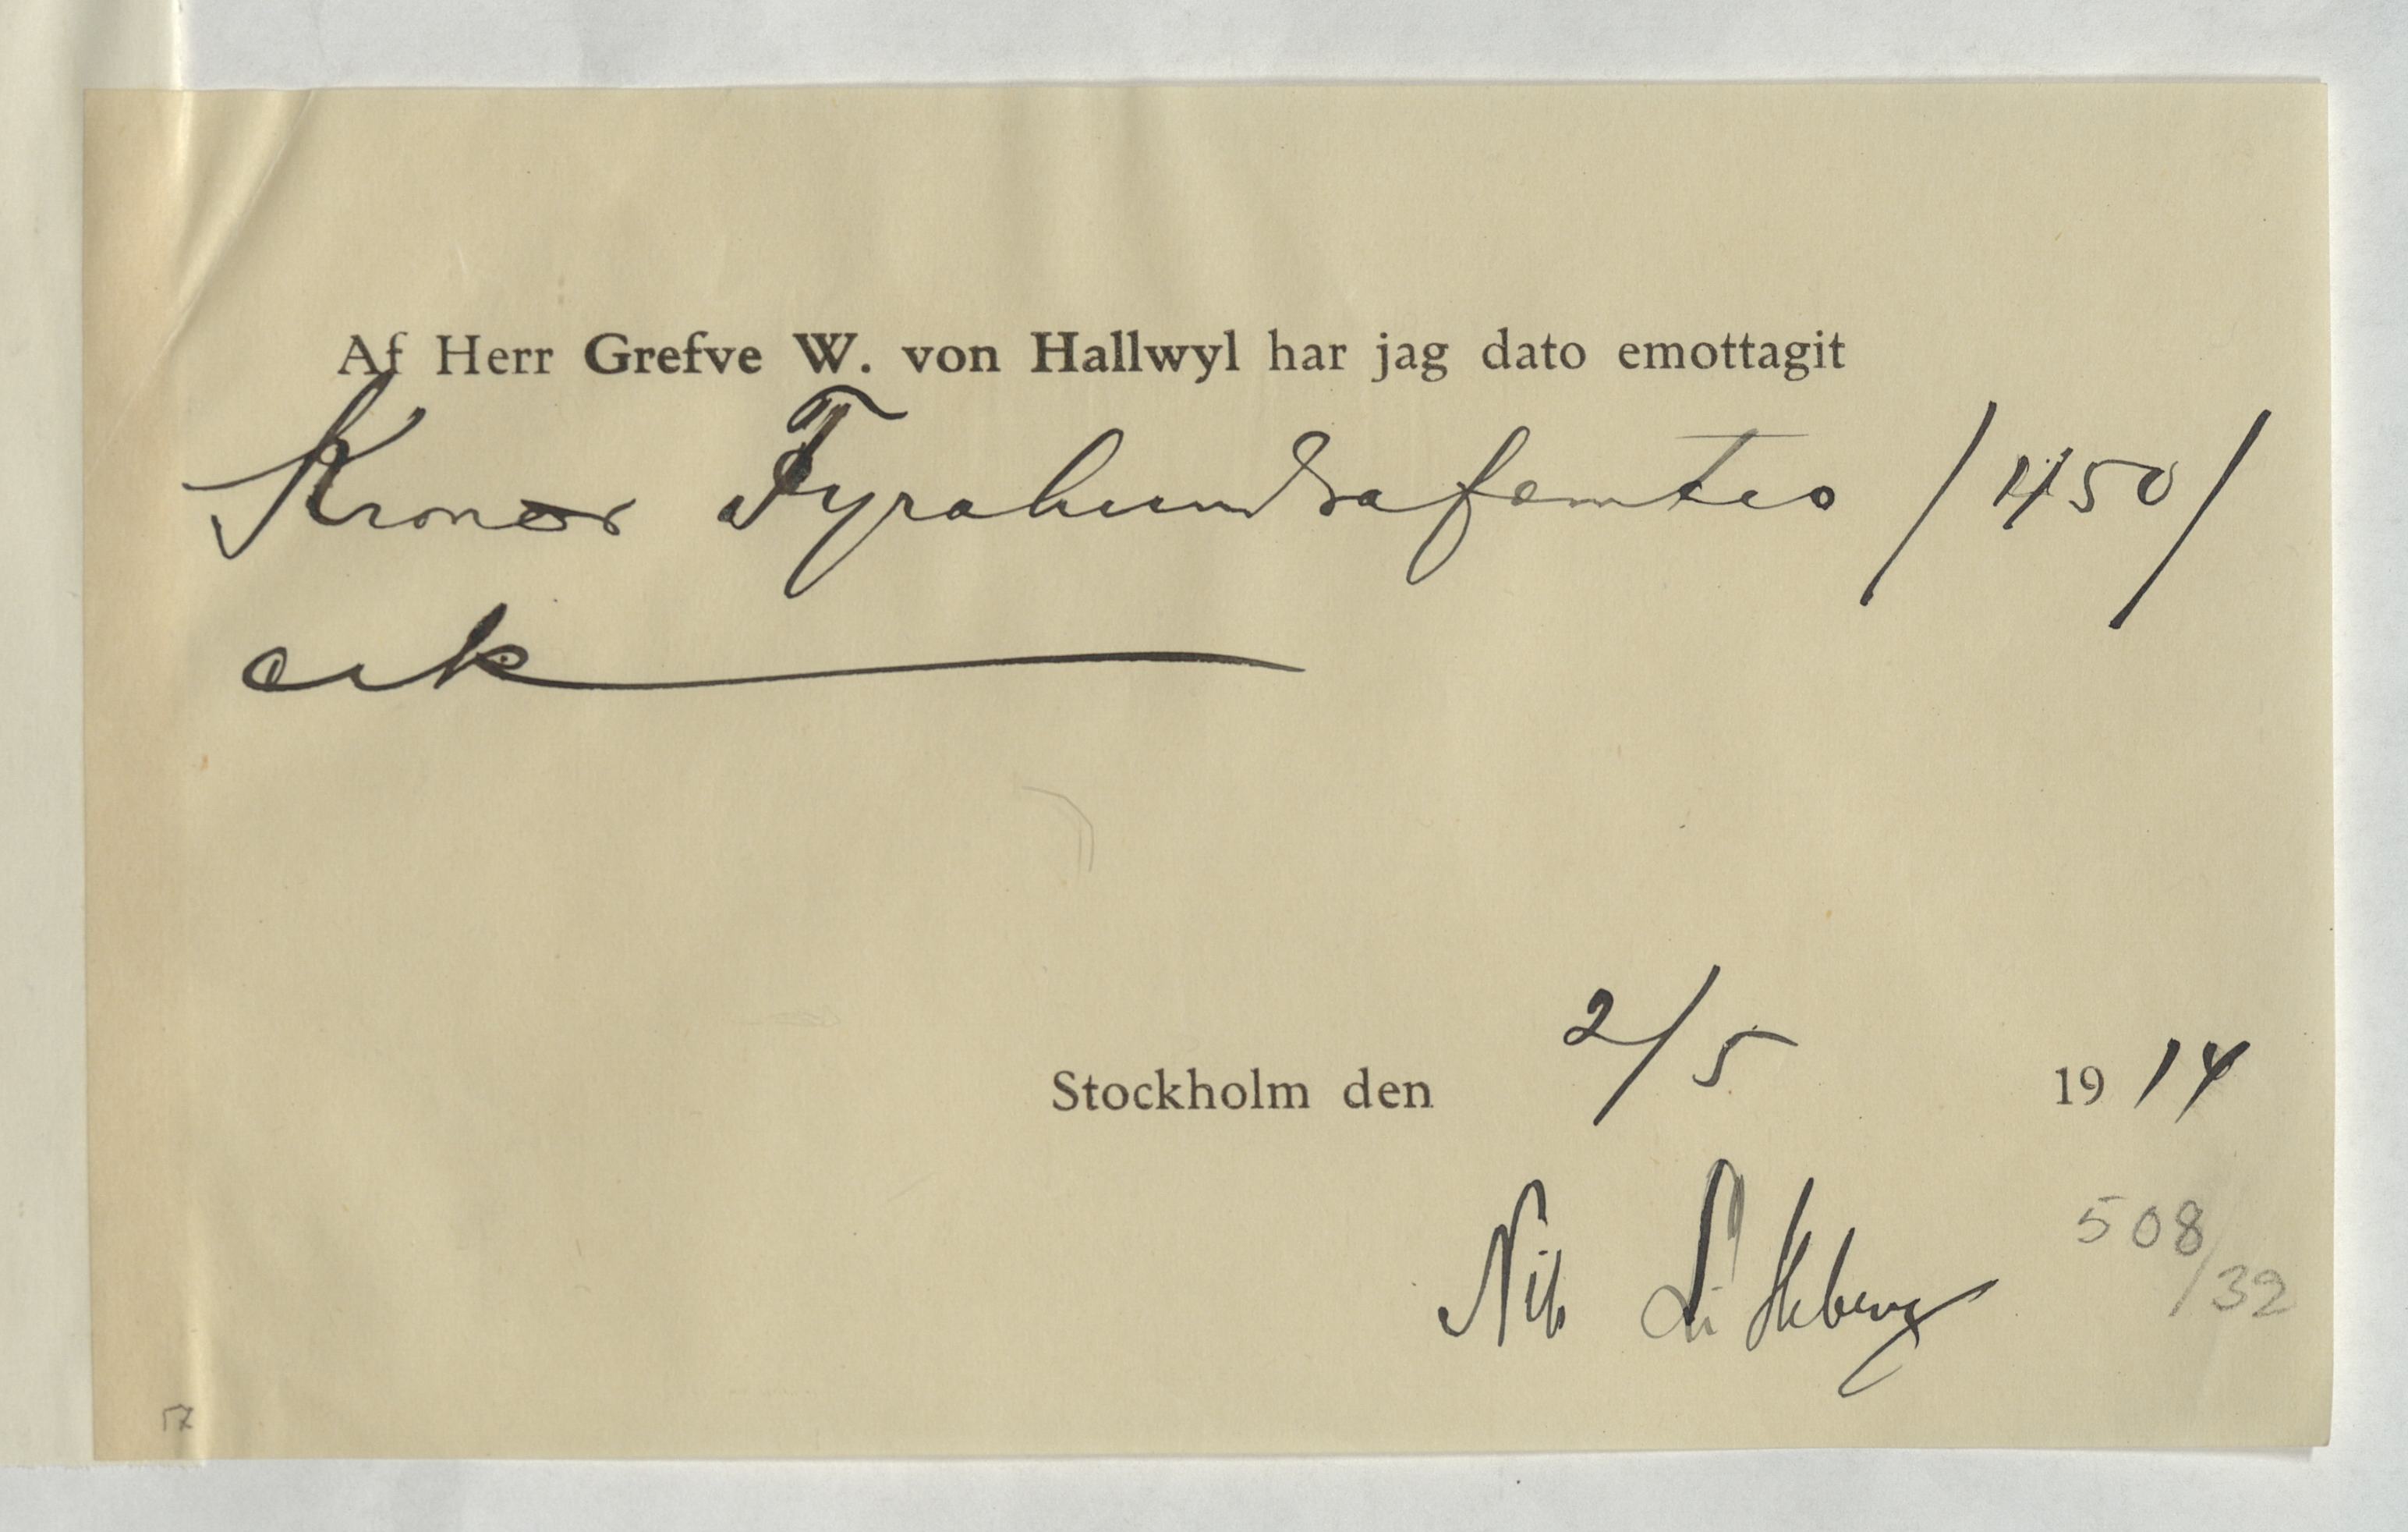 Af Herr Grefve W. von Hallwyl har jag dato emottagit
Kronor Fyrahundrafemtio /450/
Stockholm den 2/5 1914
Nils Lithberg
508/32
57